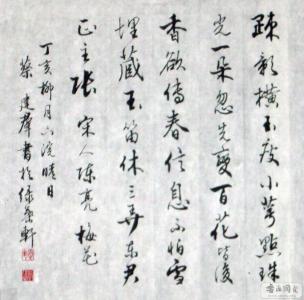 疎影橫玉瘦小萼點珠
光一朵忽先變百花皆後
香欲傳春信息不怕雪
埋藏玉笛休三弄東君
正主張 宋人陳亮梅花
丁亥柳月浣晴日
蔡建羣書於綠軒